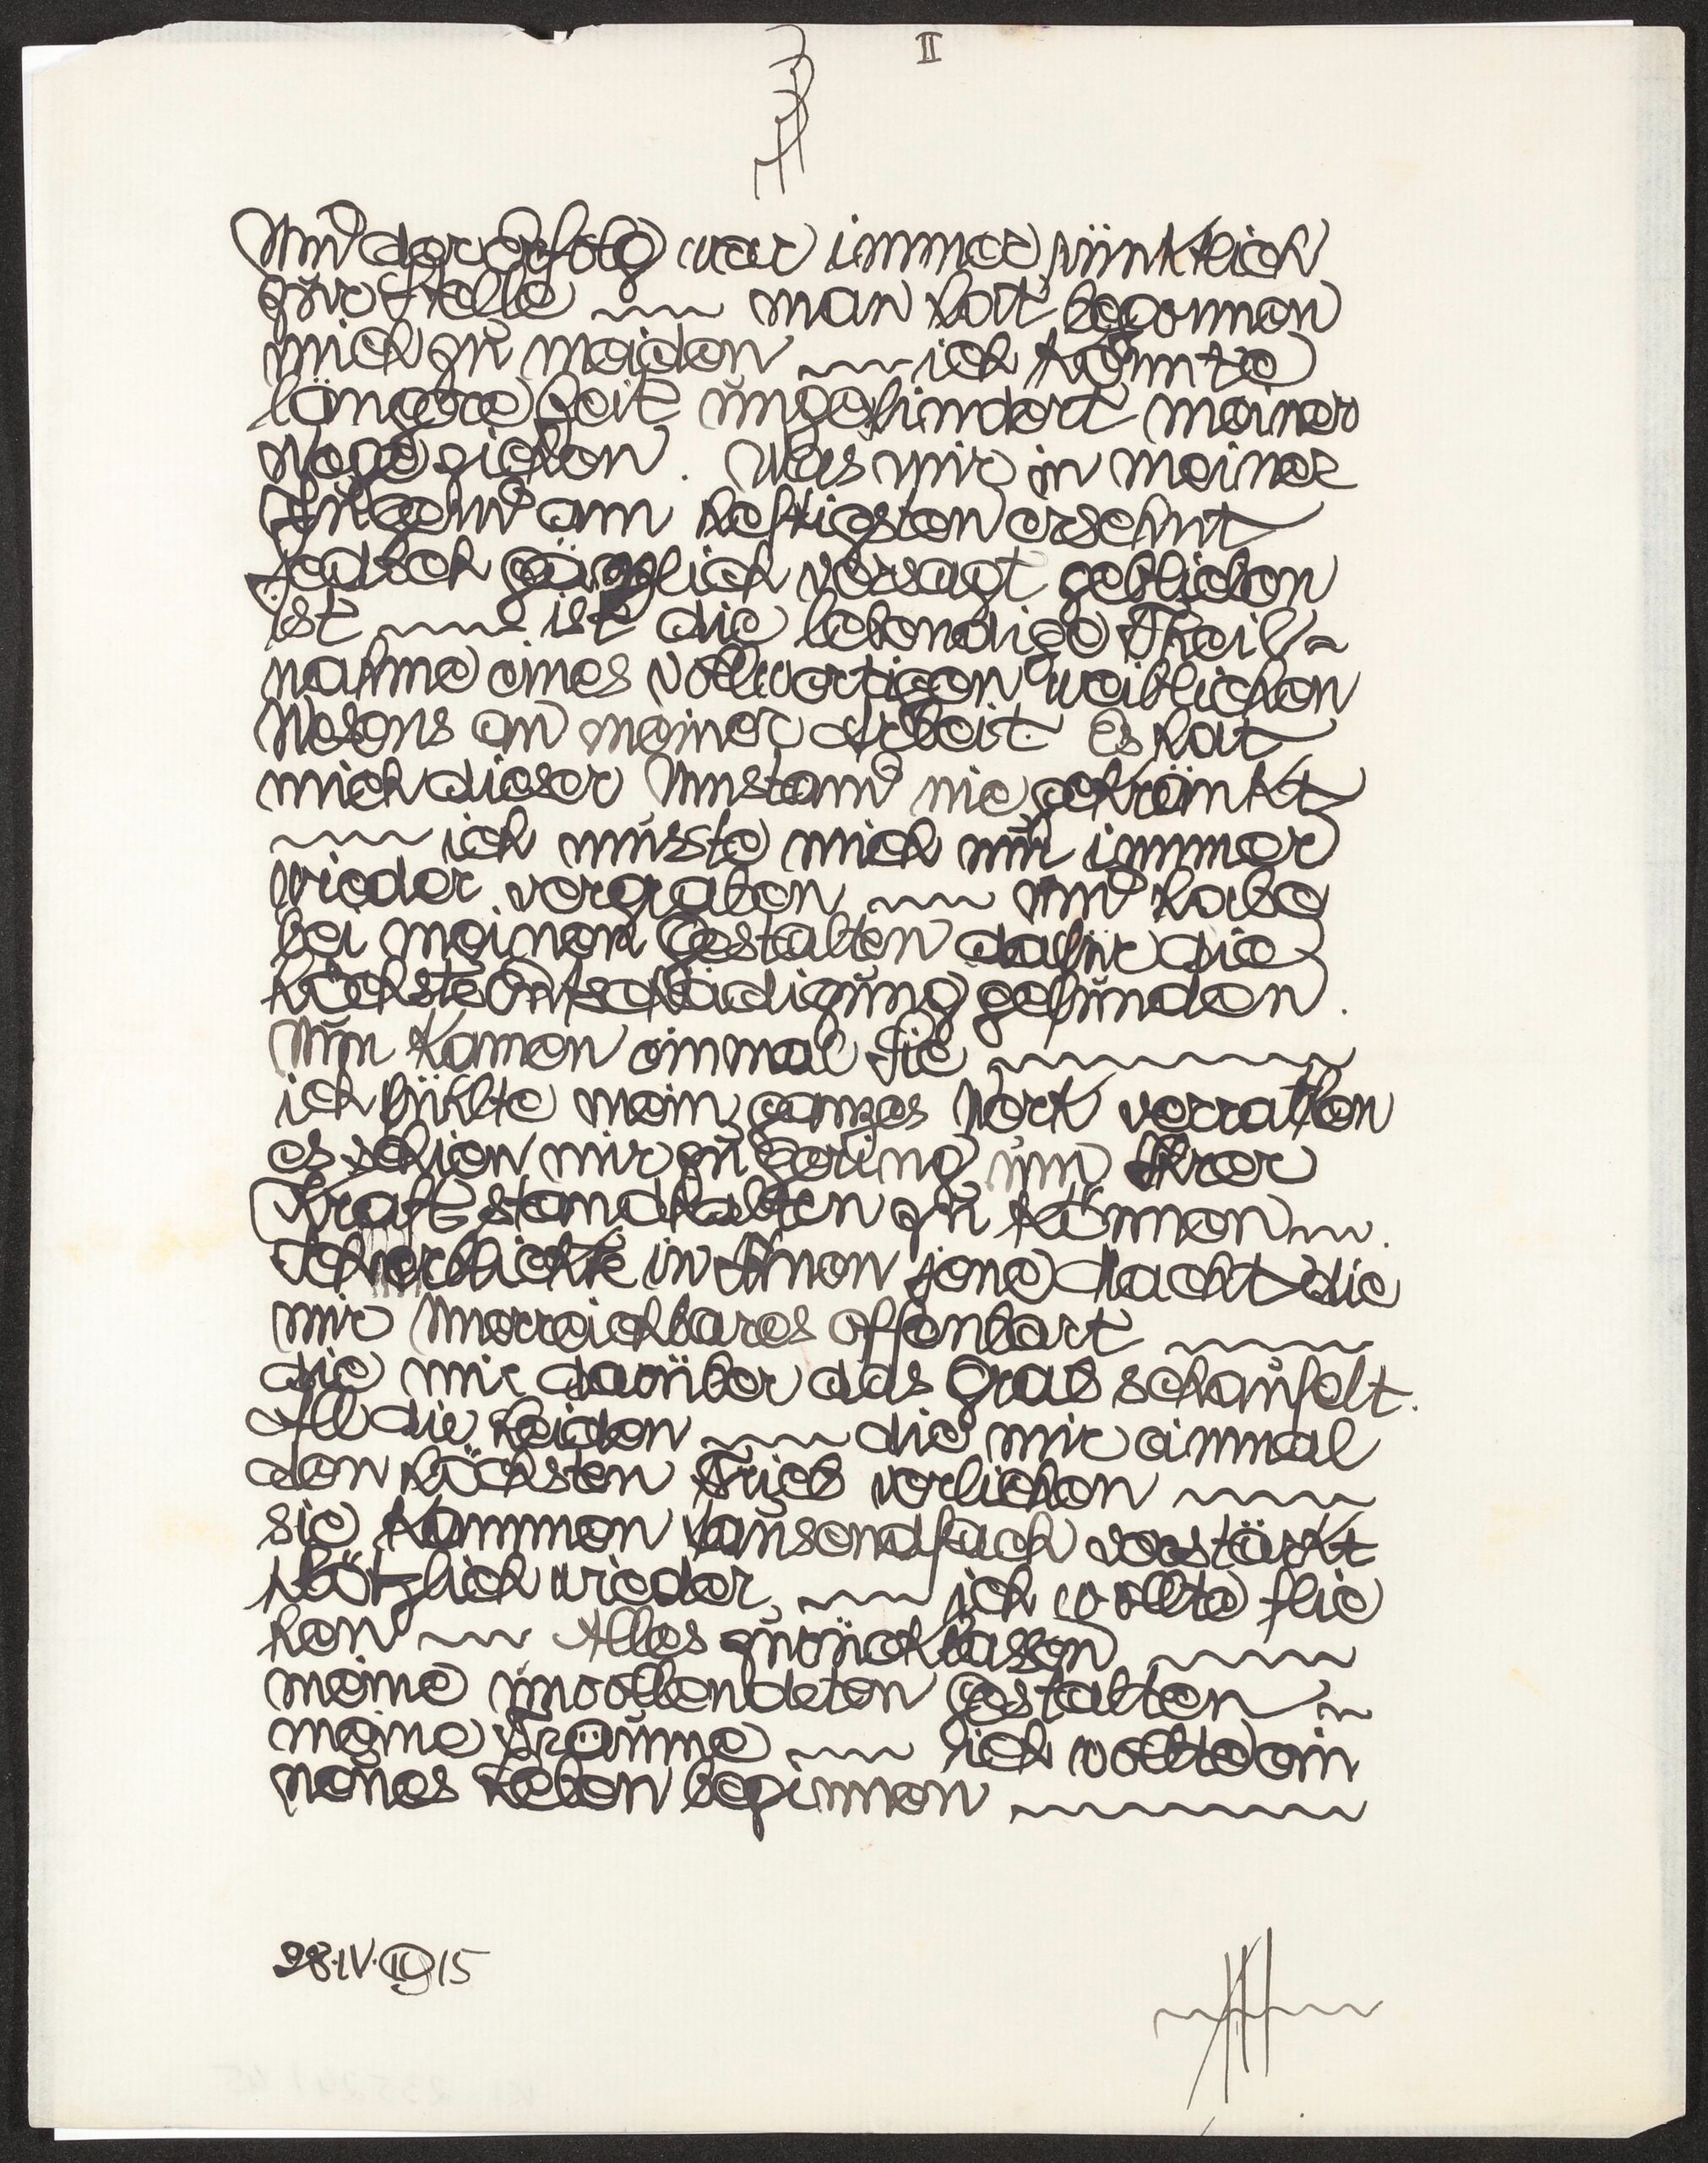 II
Und der Erfolg war immer pünktlich
zur Stelle ~~~ man hat begonnen
mich zu meiden ~~~ ich konnte
längere Zeit ungehindert meiner
Wege ziehen. Was mir in meiner
Jugend am heftigsten ersehnt
jedoch gänzlich versagt geblieben
ist ~~~ ist die lebendige Theil~
nahme eines vollwertigen weiblichen
Wesens an meiner Arbeit. Es hat
mich dieser Umstand nie gekränkt
~~~ ich musste mich nur immer
wieder vergraben ~~~ und habe
bei meinen Gestalten dafür die
höchste Entschädigung gefunden.
Nun kamen einmal Sie ~~~~~~
ich fühlte mein ganzes Werk verrathen
es schien mir zu gering um Ihrer
Kraft standhalten zu können ~~.
Ich erblickte in Ihnen jene Macht die
mir Unerreichbares offenbart ~~~~
die mir darüber das Grab schaufelt.
All die Leiden ~~~ die mir einmal
den höchsten Trieb verliehen ~~~~
sie kommen tausendfach verstärkt
plötzlich wieder ~~~ ich wollte flie
hen ~~~ Alles zurücklassen ~~~~
meine unvollendeten Gestalten ~~
meine Träume ~~~ ich wollte ein
neues Leben beginnen ~~~~~~~
28·IV·1915